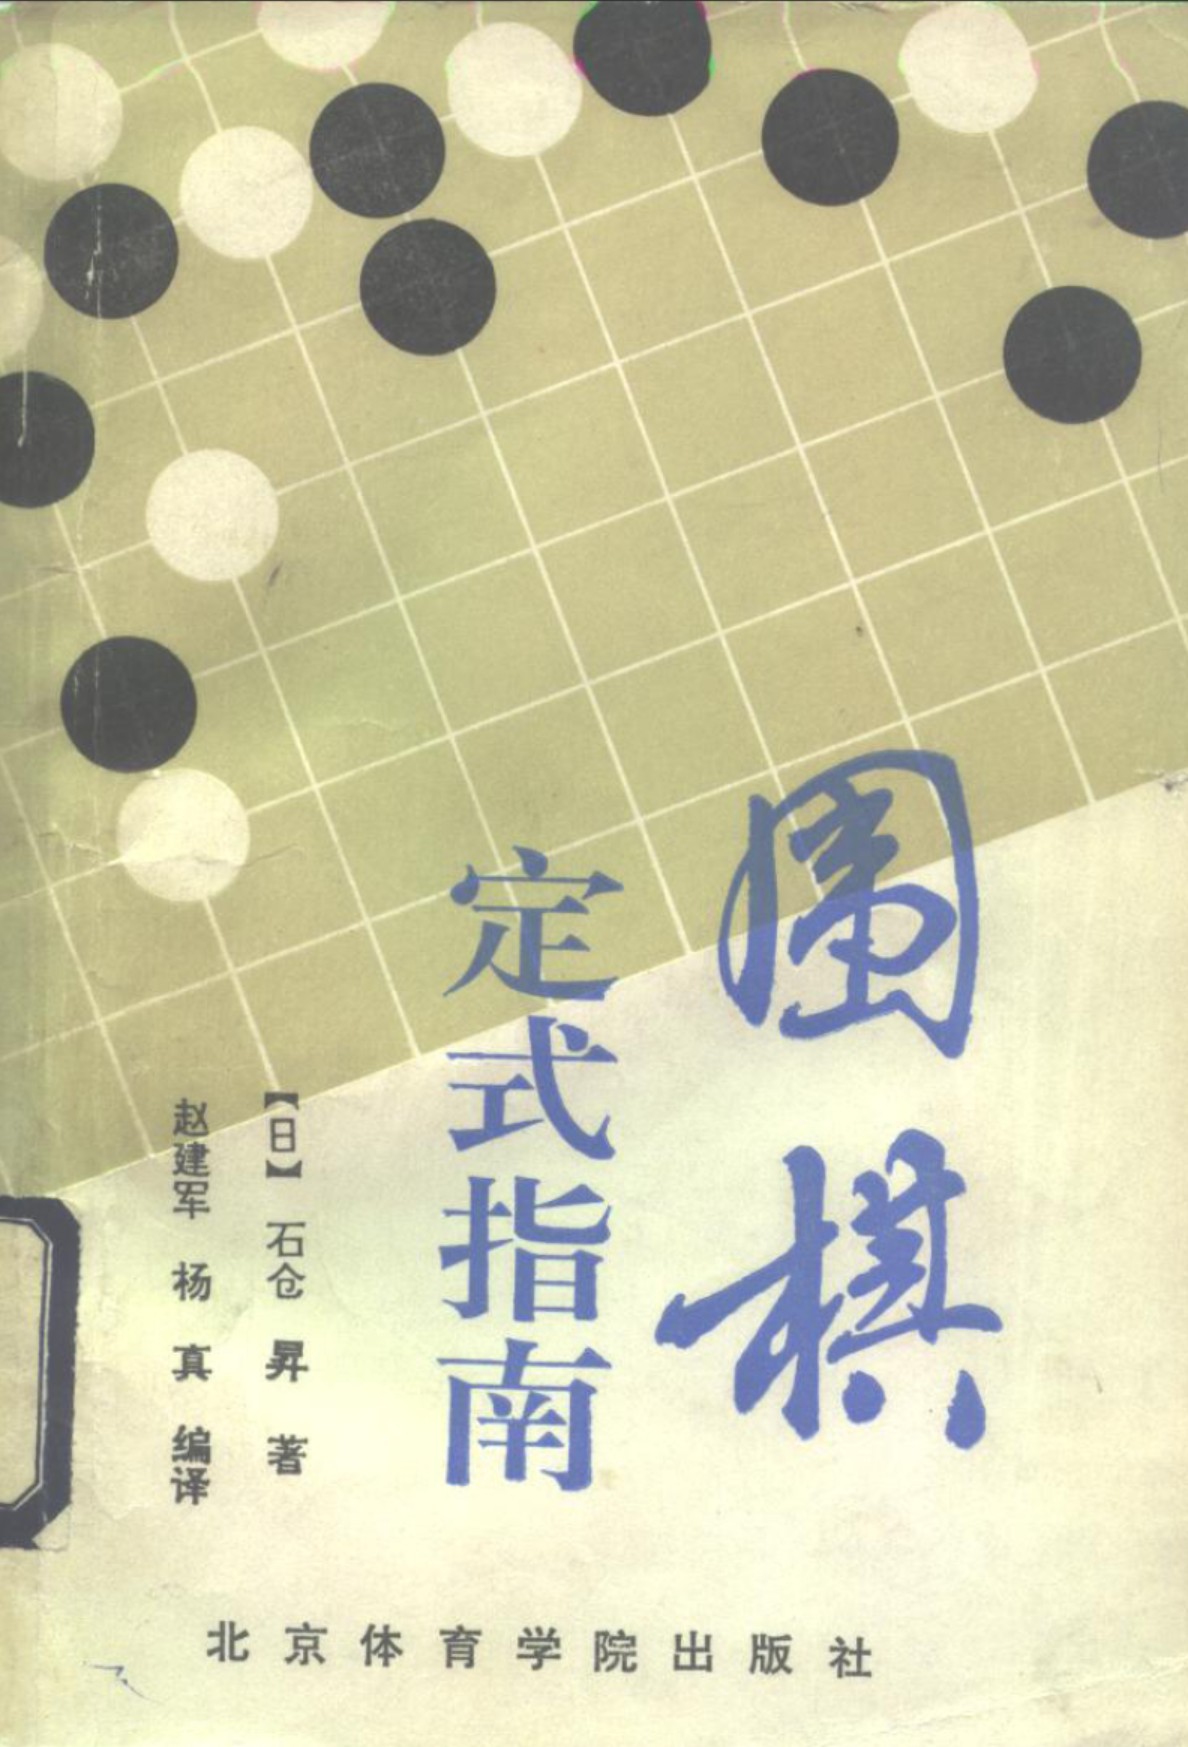 围棋
定式指南
【日】 石仓 昇 著
赵建军 杨 真 编译
北京体育学院出版社